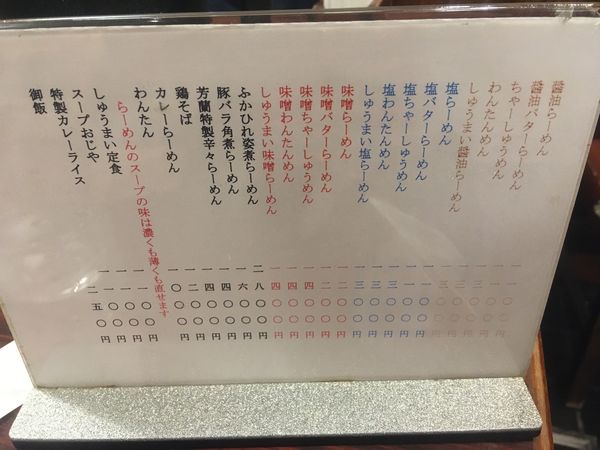 醤油らーめん 一一〇〇円
醤油バターらーめん 一一〇〇円
ちゃーしゅうめん 一三〇〇円
わんたんめん 一三〇〇円
しゅうまい醤油らーめん 一三〇〇円
塩らーめん 一一〇〇円
塩バターらーめん 一一〇〇円
塩ちゃーしゅうめん 一三〇〇円
塩わんたんめん 一三〇〇円
しゅうまい塩らーめん 一三〇〇円
味噌らーめん 一二〇〇円
味噌バターらーめん 一二〇〇円
味噌ちゃーしゅうめん 一四〇〇円
味噌わんたんめん 一四〇〇円
しゅうまい味噌らーめん 一四〇〇円
ふかひれ姿煮らーめん 二八〇〇円
豚バラ角煮らーめん 一六〇〇円
芳蘭特製辛々らーめん 一四〇〇円
鶏そば 一四〇〇円
カレーらーめん 一二〇〇円
わんたん 一〇〇〇円
らーめんのスープの味は濃くも薄くも直せます
しゅうまい定食 一一〇〇円
スープおじや 一一〇〇円
特製カレーライス 一一〇〇円
御飯 二五〇円